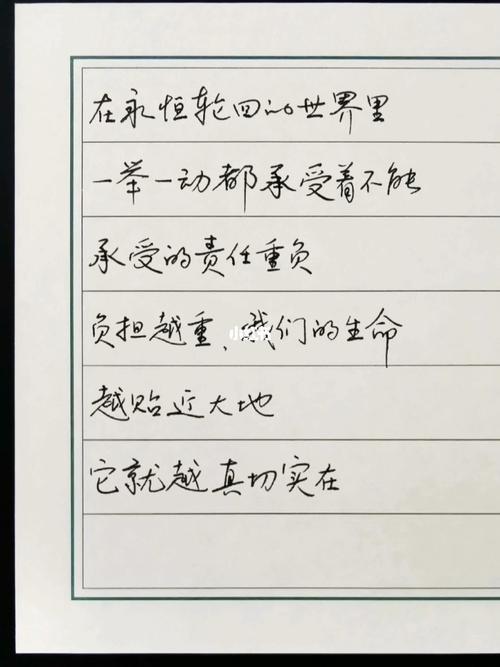 在永恒轮回的世界里
一举一动都承受着不能
承受的责任重负
负担越重，我们的生命
越贴近大地
它就越真切实在
小红书